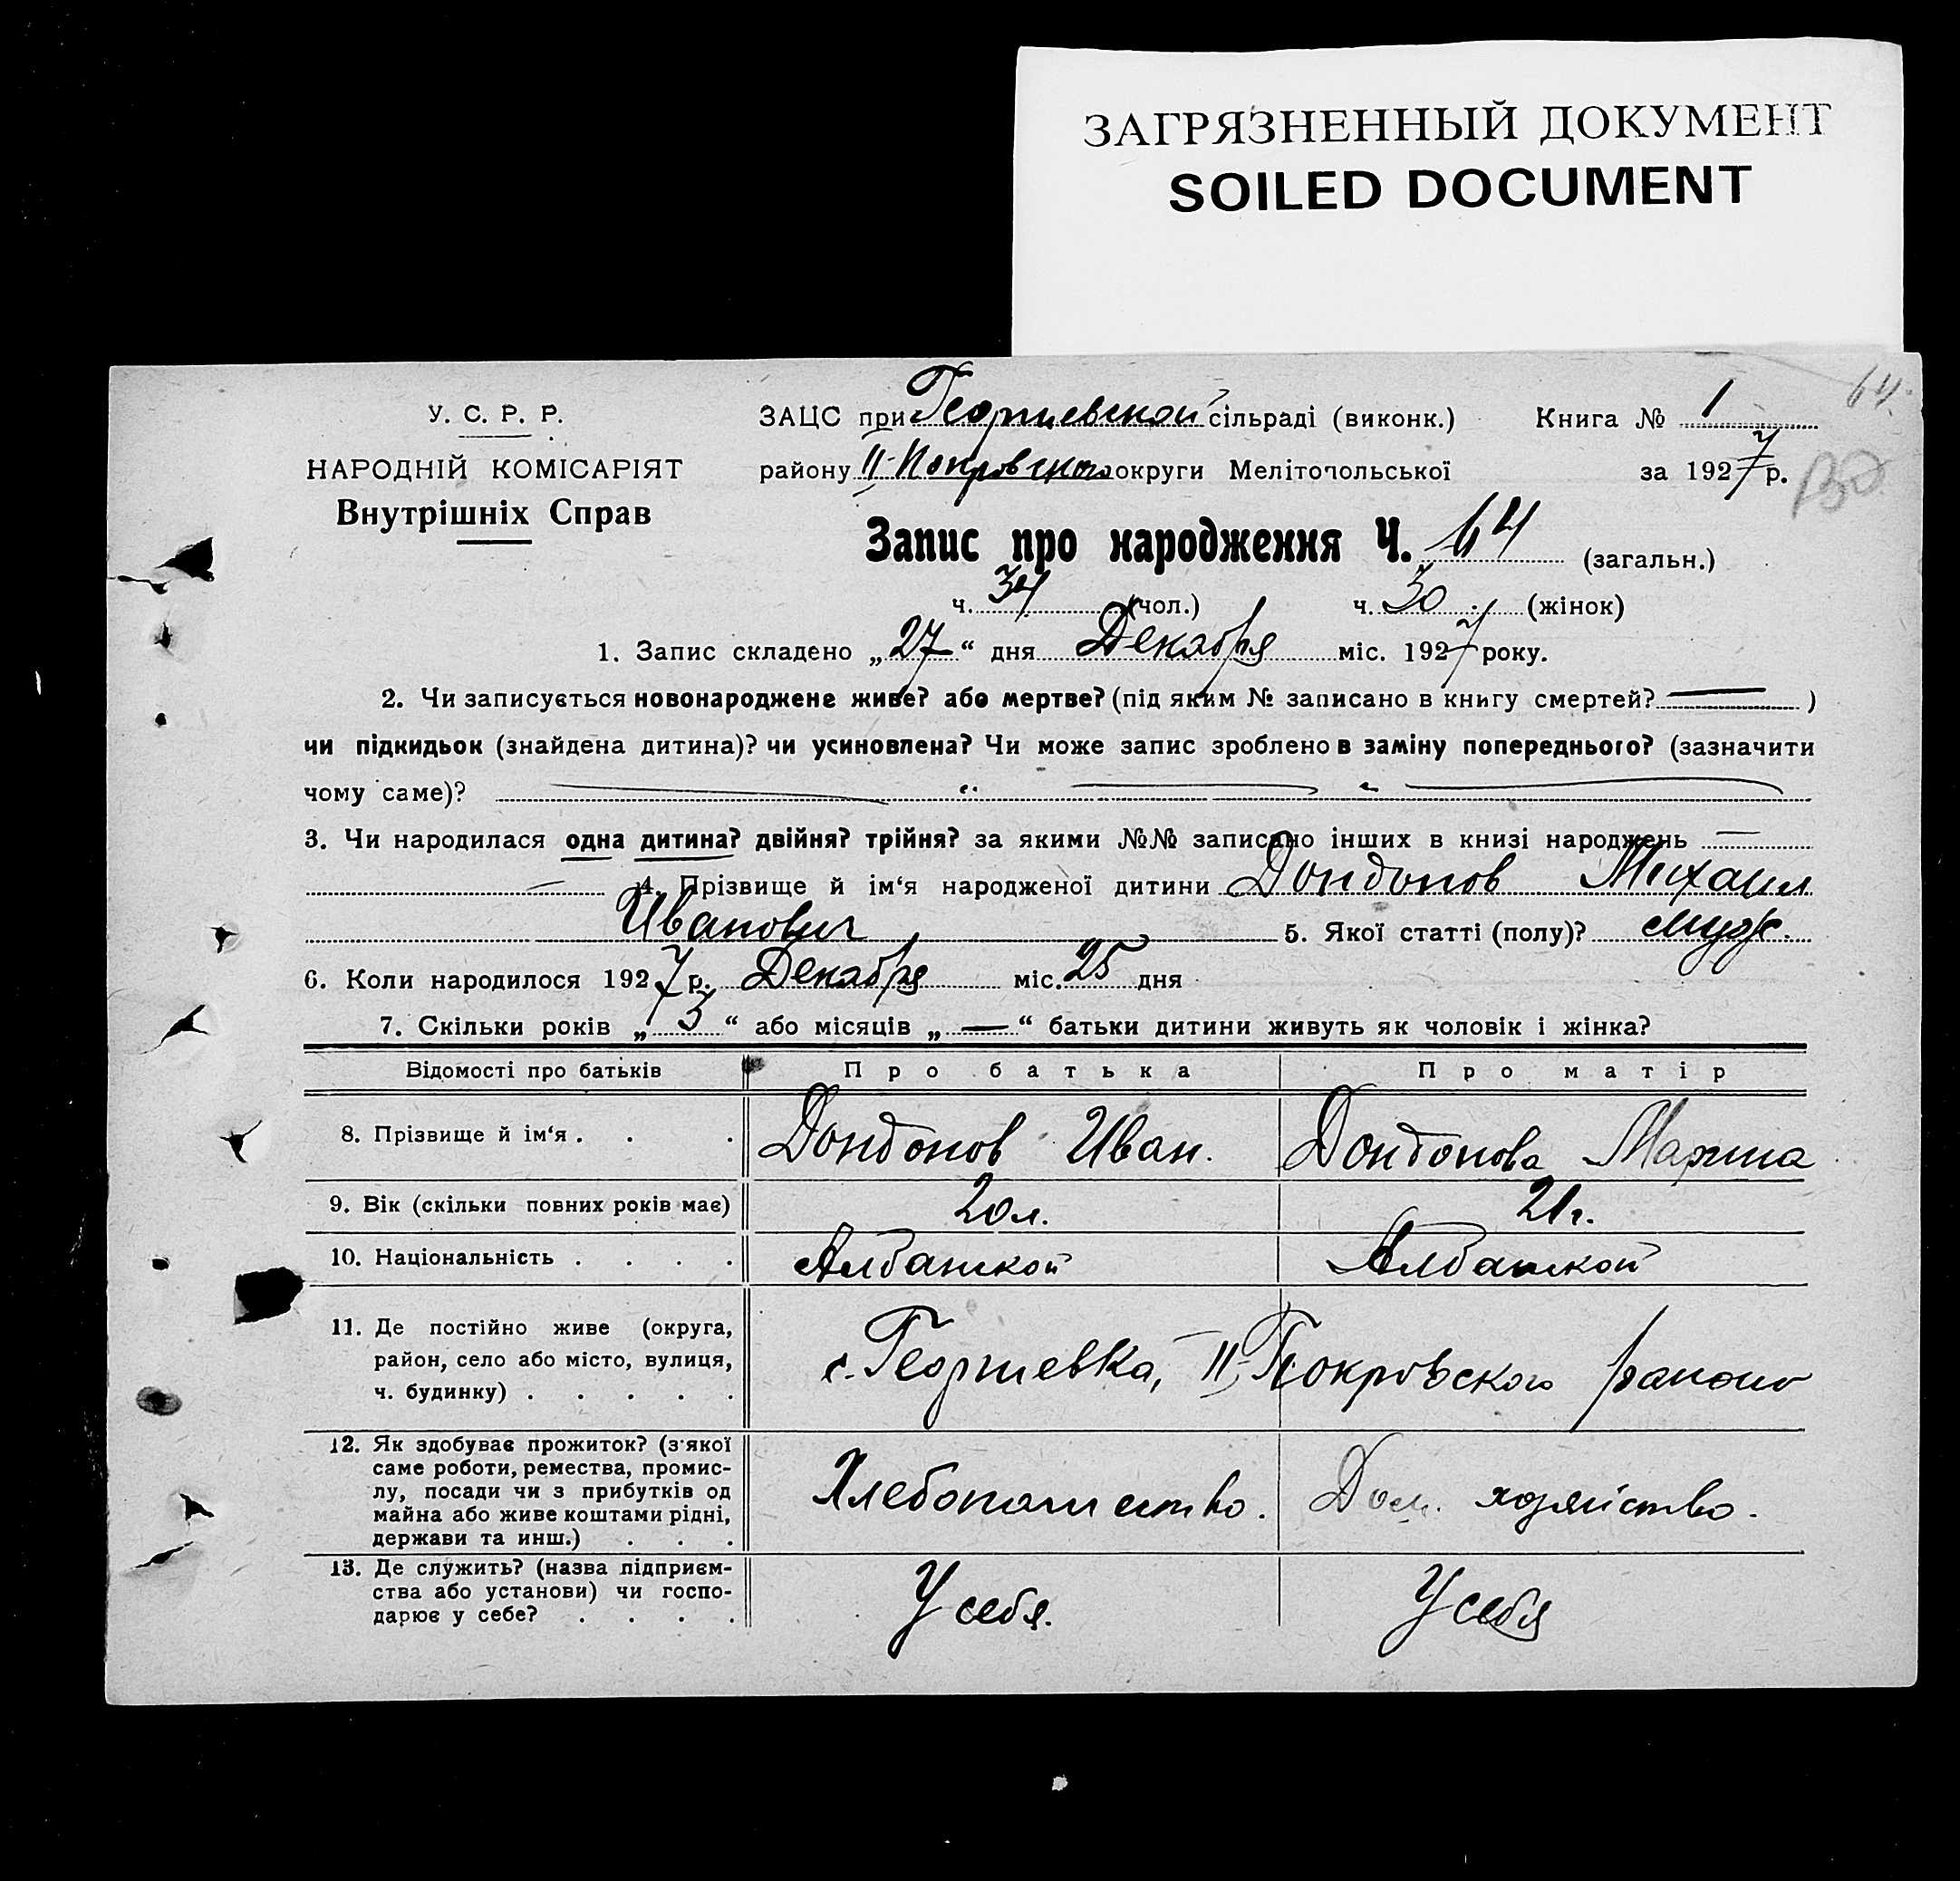 ЗАГРЯЗНЕННЫЙ ДОКУМЕНТ
SOILED DOCUMENT
64.
У. С. Р. Р.
НАРОДНІЙ КОМІСАРІЯТ
Внутрішніх Справ
ЗАЦС при Георгиевской сільраді (виконк.) Книга № 1
району II-Покровского округи Мелітопольської за 1927 р.
Запис про народження Ч. 64 (загальн.)
ч. 34 (чол.) ч. 30 (жінок)
1. Запис складено „27“ дня Декабря міс. 1927 року.
2. Чи записується новонароджене живе? або мертве? (під яким № записано в книгу смертей? — )
чи підкидьок (знайдена дитина)? чи усиновлена? Чи може запис зроблено в заміну попереднього? (зазначити
чому саме)?
3. Чи народилася одна дитина? двійня? трійня? за якими №№ записано інших в книзі народжень —
— 4. Прізвище й ім‘я народженої дитини Дондонов Михаил
Иванович 5. Якої статті (полу)? муж.
6. Коли народилося 1927 р. Декабря міс. 25 дня
7. Скільки років „3“ або місяців „—“ батьки дитини живуть як чоловік і жінка?
Відомості про батьків Про батька Про матір
8. Прізвище й ім‘я . . . Дондонов Иван. Дондонова Марина
9. Вік (скільки повних років має) 20 л. 21 г.
10. Національність . . . . Албанской Албанской
11. Де постійно живе (округа,
район, село або місто, вулиця,
ч. будинку) . . . . .
с. Георгиевка, II-Покровского района
12. Як здобуває прожиток? (з‘якої
саме роботи, ремества, промис-
лу, посади чи з прибутків од
майна або живе коштами рідні,
держави та инш.) . . .
Хлебопашество. Дом. хозяйство.
13. Де служить? (назва підприєм-
ства або установи) чи госпо-
дарює у себе? . . . .
У себя. У себя